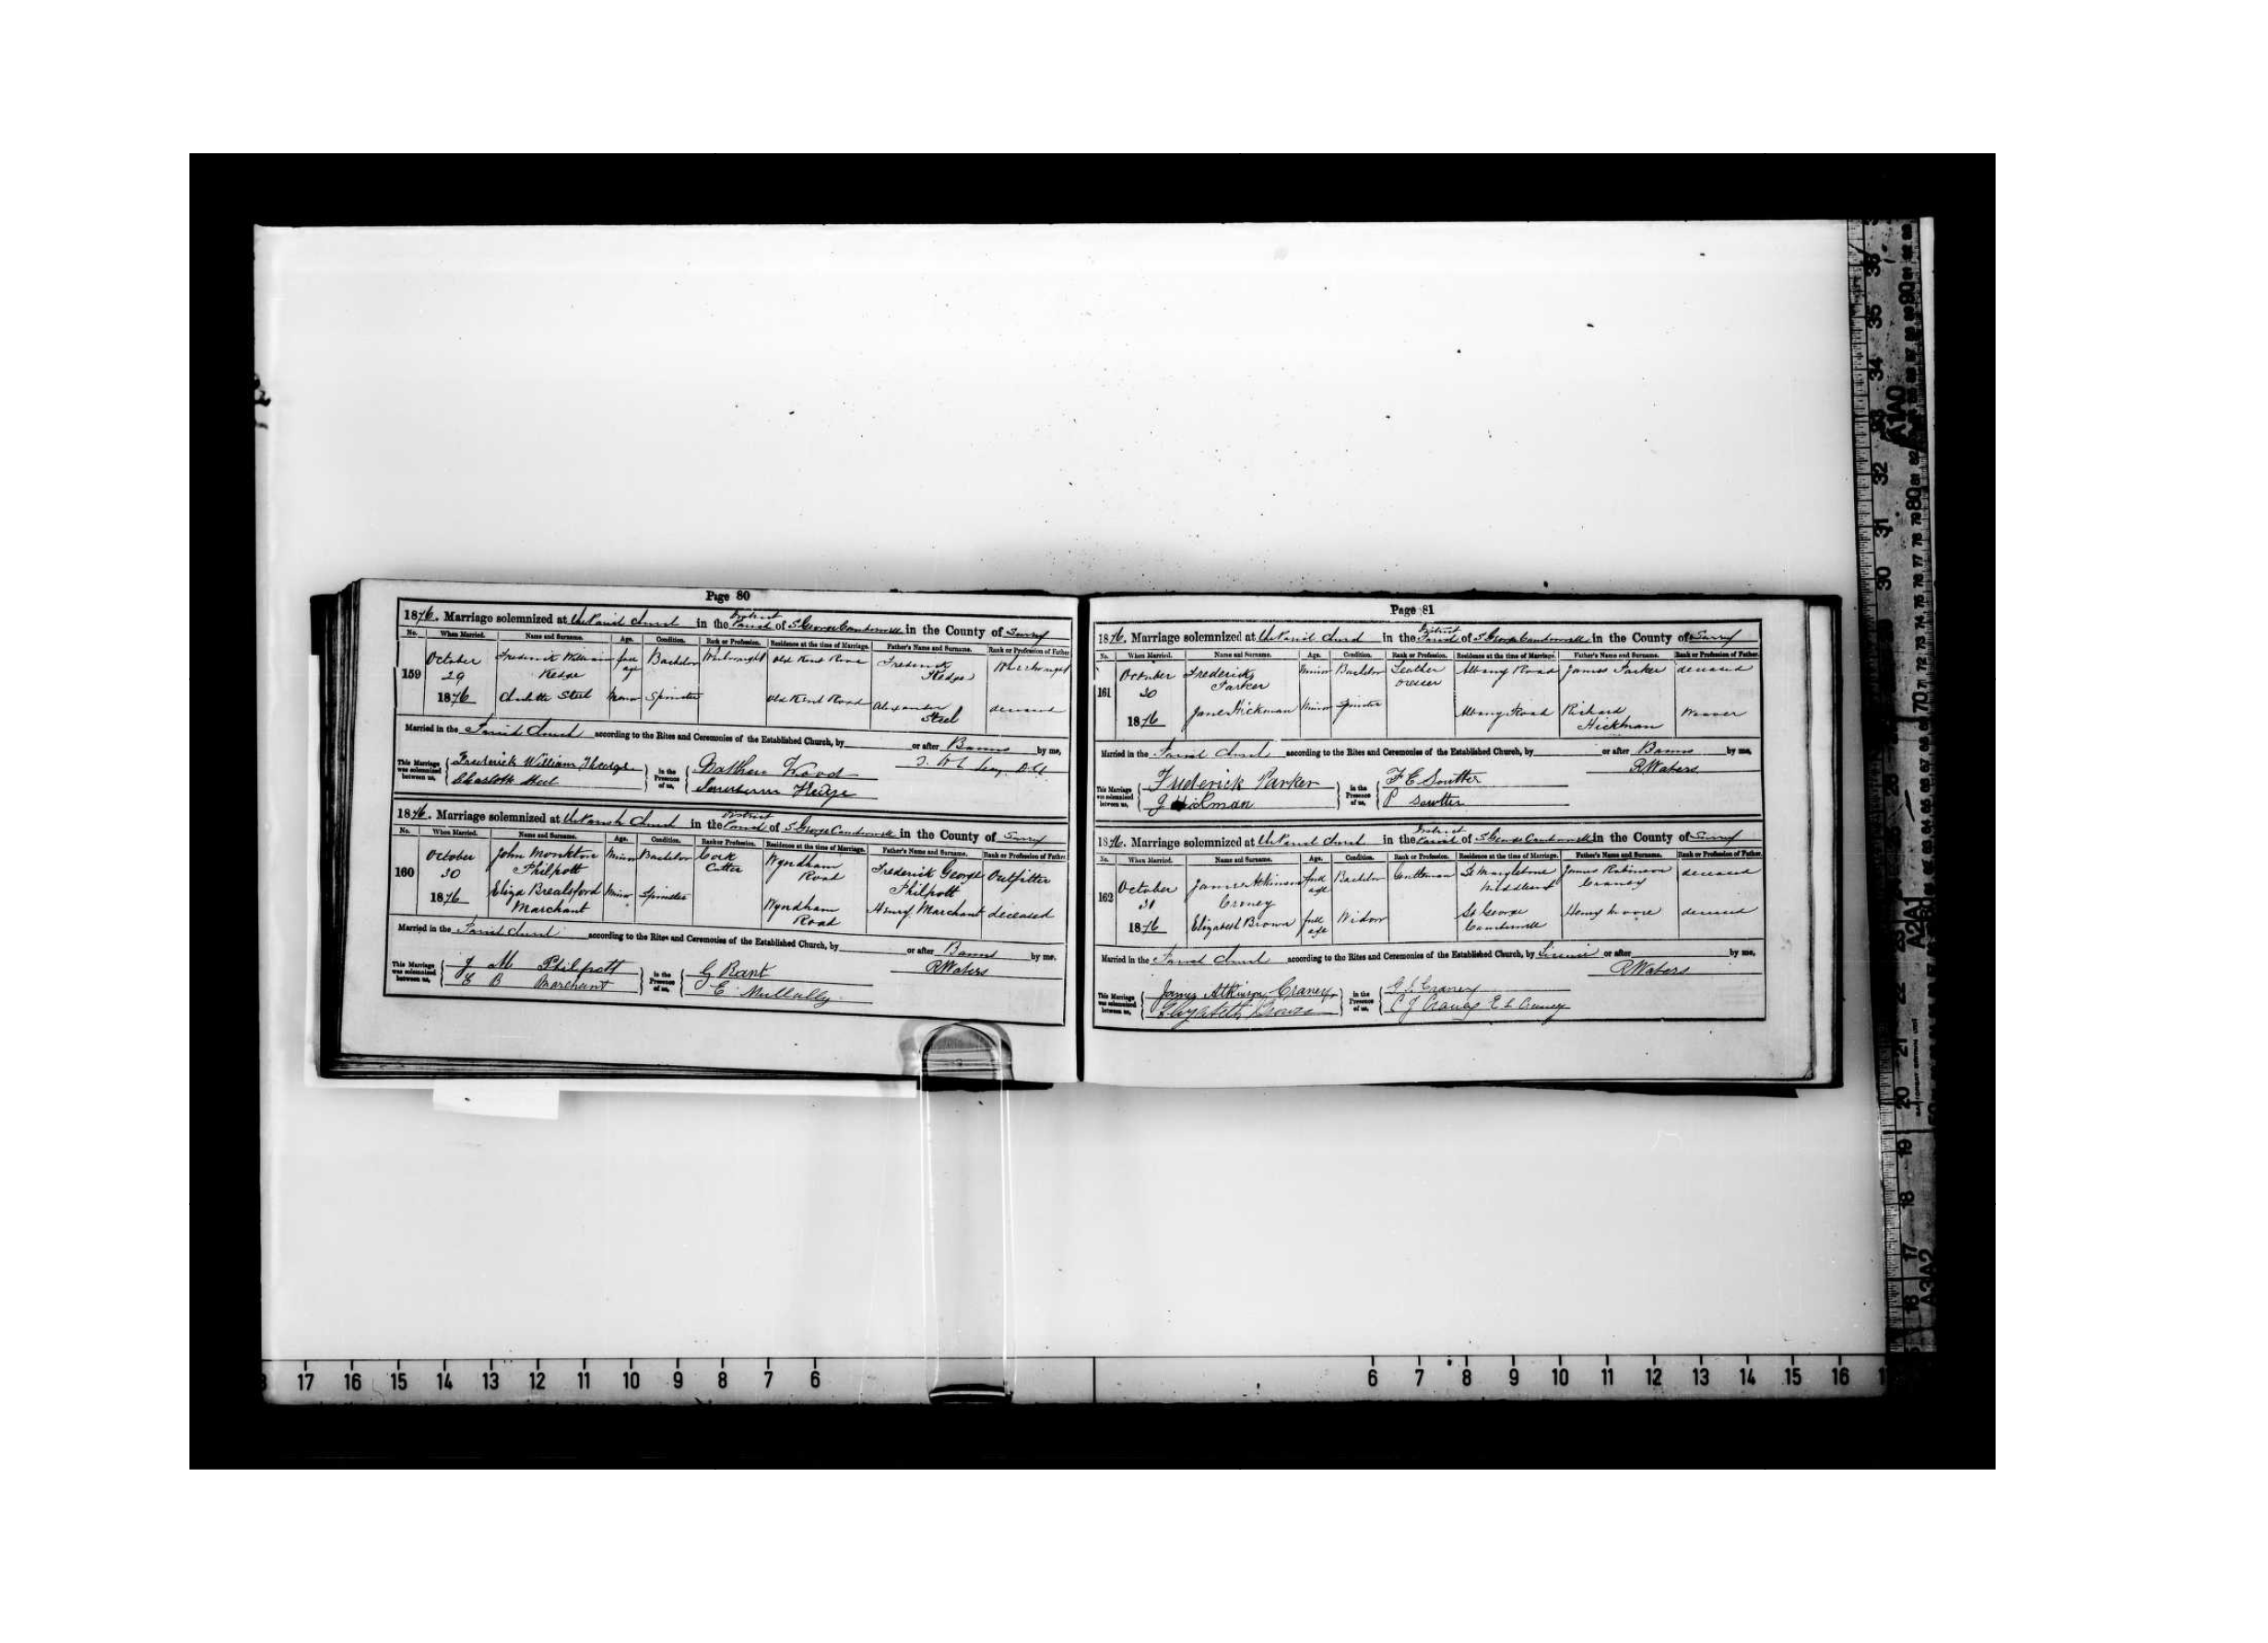 Page 80
1876. Marriage solemnized at the Parish Church in the District Parish of St George Camberwell in the County of Surrey
No. When Married. Name and Surname. Age. Condition. Rank or Profession. Residence at the time of Marriage. Father's Name and Surname. Rank or Profession of Father.
159 October 29 1876 Frederick William Hedge full age Bachelor Old Kent Road Frederick Hedge
Charlotte Steel Minor Spinster Old Kent Road Alexander Steel deceased
Married in the Parish Church according to the Rites and Ceremonies of the Established Church, by or after Banns by me,
This Marriage was solemnized between us, Frederick William Hedge Charlotte Steel in the Presence of us, Mathew Wood Hedge
1876. Marriage solemnized at the Parish Church in the District Parish of St George Camberwell in the County of Surrey
No. When Married. Name and Surname. Age. Condition. Rank or Profession. Residence at the time of Marriage. Father's Name and Surname. Rank or Profession of Father.
160 October 30 1876 John Monkton Philpott Minor Bachelor Cork Cutter Wyndham Road Frederick George Philpott Outfitter
Eliza Brealsford Marchant Minor Spinster Wyndham Road Henry Marchant deceased
Married in the Parish Church according to the Rites and Ceremonies of the Established Church, by or after Banns by me,
R Waters
This Marriage was solemnized between us, J M Philpott E B Marchant in the Presence of us, G Rant E Mullally
Page 81
1876. Marriage solemnized at the Parish Church in the District Parish of St George Camberwell in the County of Surrey
No. When Married. Name and Surname. Age. Condition. Rank or Profession. Residence at the time of Marriage. Father's Name and Surname. Rank or Profession of Father.
161 October 30 1876 Frederick Parker Minor Bachelor Leather Dresser Albany Road James Parker deceased
Jane Hickman Minor Spinster Albany Road Richard Hickman Weaver
Married in the Parish Church according to the Rites and Ceremonies of the Established Church, by or after Banns by me,
R Waters
This Marriage was solemnized between us, Frederick Parker J Hickman in the Presence of us, F E Soutter P Soutter
1876. Marriage solemnized at the Parish Church in the District Parish of St George Camberwell in the County of Surrey
No. When Married. Name and Surname. Age. Condition. Rank or Profession. Residence at the time of Marriage. Father's Name and Surname. Rank or Profession of Father.
162 October 31 1876 James Atkinson Craney full age Bachelor Gentleman St Marylebone Middlesex James Robinson Craney deceased
Elizabeth Brown full age Widow St George Camberwell Henry Moore deceased
Married in the Parish Church according to the Rites and Ceremonies of the Established Church, by Licence or after by me,
R Waters
This Marriage was solemnized between us, James Atkinson Craney Elizabeth Brown in the Presence of us, Craney C J Craney E L Craney
17 16 15 14 13 12 11 10 9 8 7 6 6 7 8 9 10 11 12 13 14 15 16